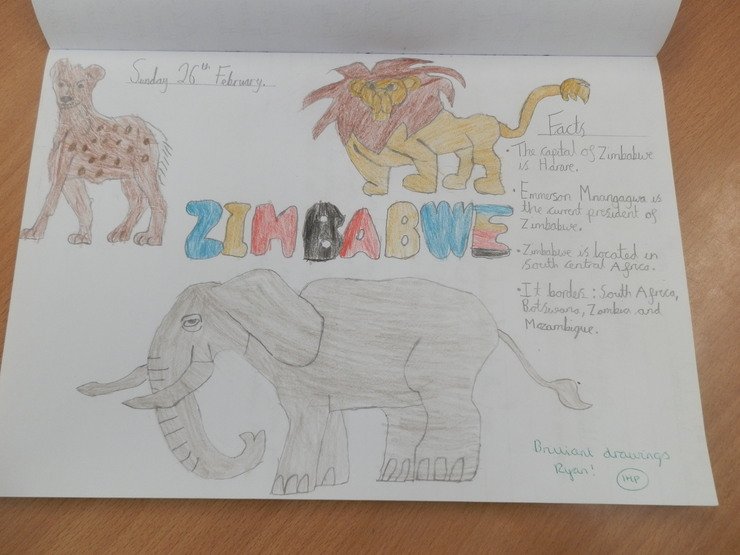 Sunday 26th February.
ZIMBABWE
Facts
• The capital of Zimbabwe
is Harare.
• Emmerson Mnangagwa is
the current president of
Zimbabwe.
• Zimbabwe is located in
South central Africa.
• It borders: South Africa,
Botswana, Zambia and
Mozambique.
Brilliant drawings
Ryan!
1HP